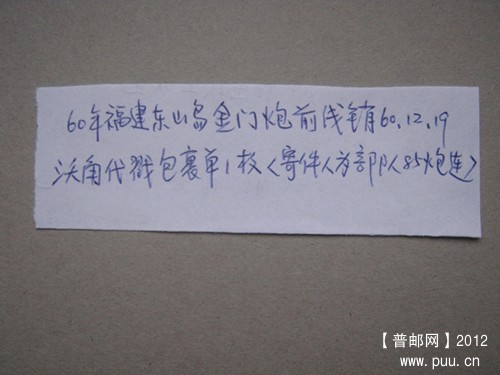 60年福建东山岛金门炮前线销有60.12.19
沃角代戳包裹单1枚<寄件人为部队85炮连>
【普邮网】2012
www.puu.cn